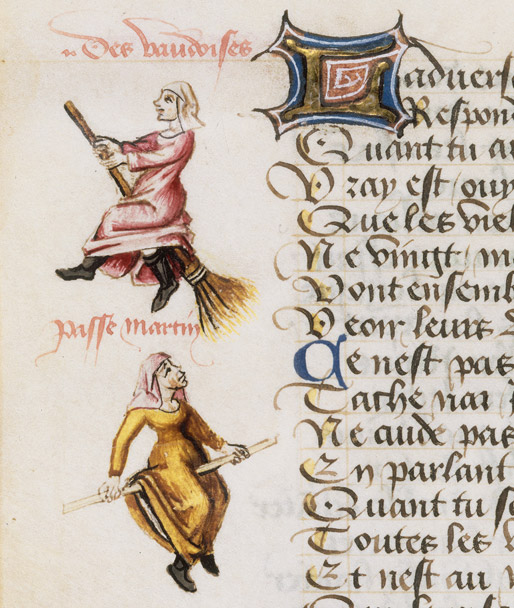 Des vaudoises
passe martin
Ladverse
Respon
Quant tu au
Vray est ouy
Que les viel
Ne vingt m
Vont ensemb
Veoir leurs
Ce nest pas
Tache nar
Ne cuide pas
En parlant
Quant tu sc
Toutes les v
Et nest au